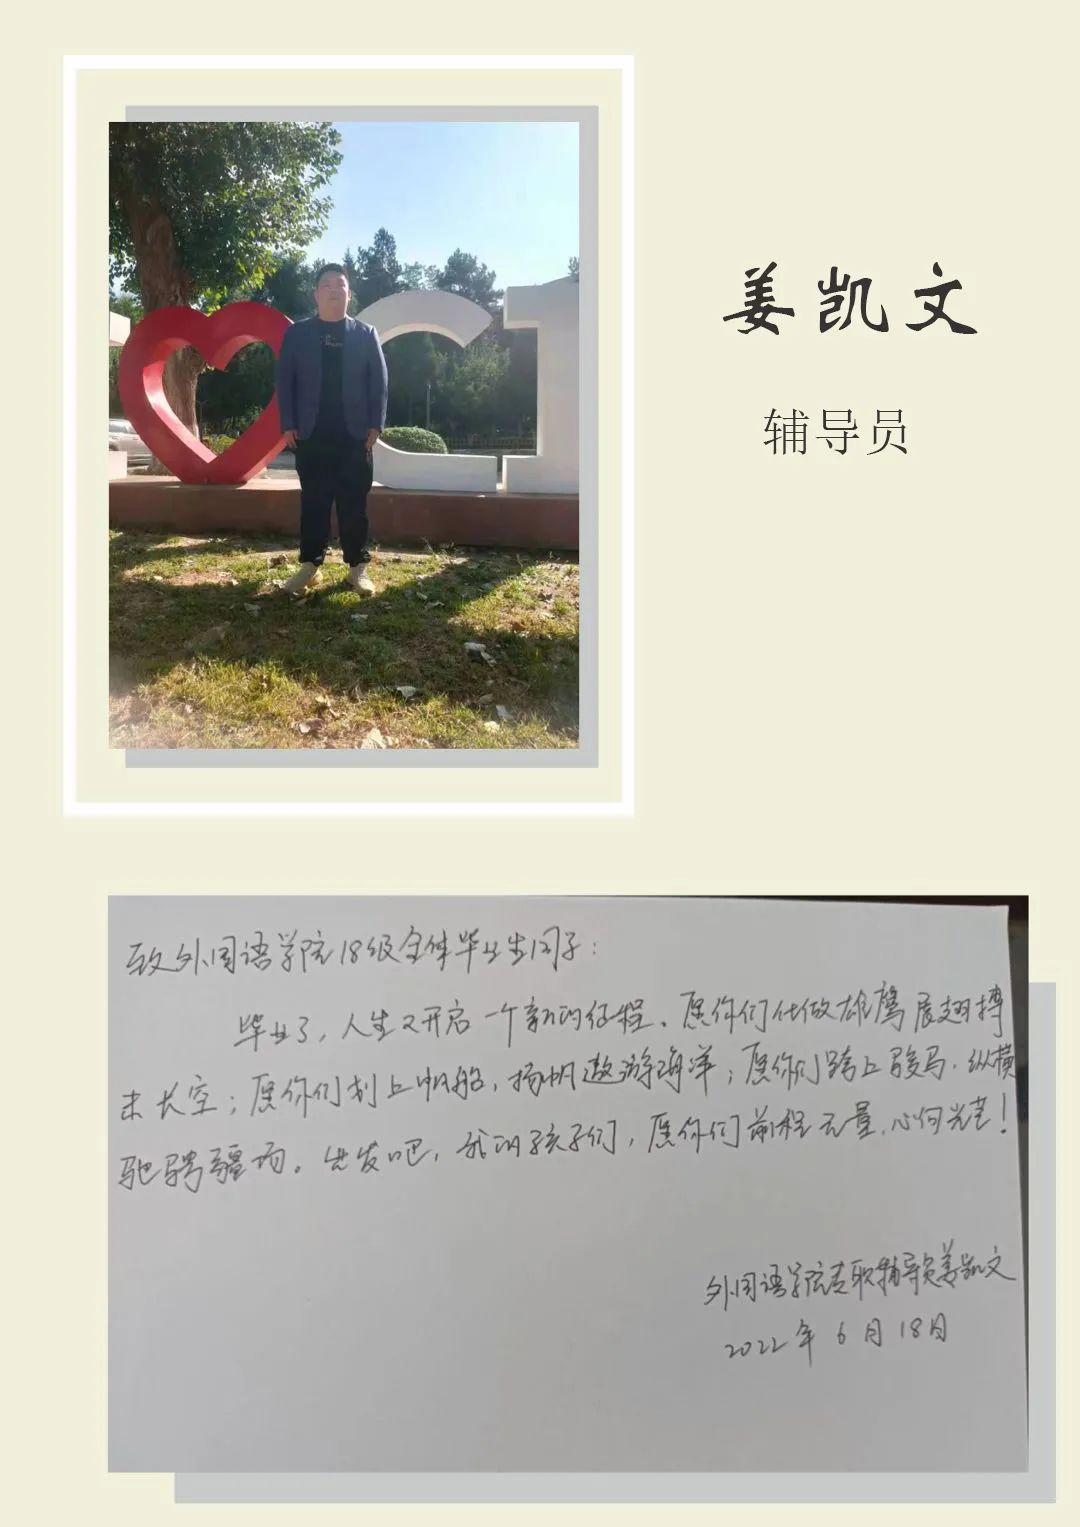 姜凯文
辅导员
致外国语学院18级全体毕业生同学:
毕业了,人生又开启一个新的征程。愿你们化做雄鹰展翅搏
击长空;愿你们划上帆船,扬帆遨游海洋;愿你们跨上骏马,纵横
驰骋疆场。出发吧,我的孩子们,愿你们前程无量,心向光芒!
外国语学院专职辅导员姜凯文
2022年6月18日